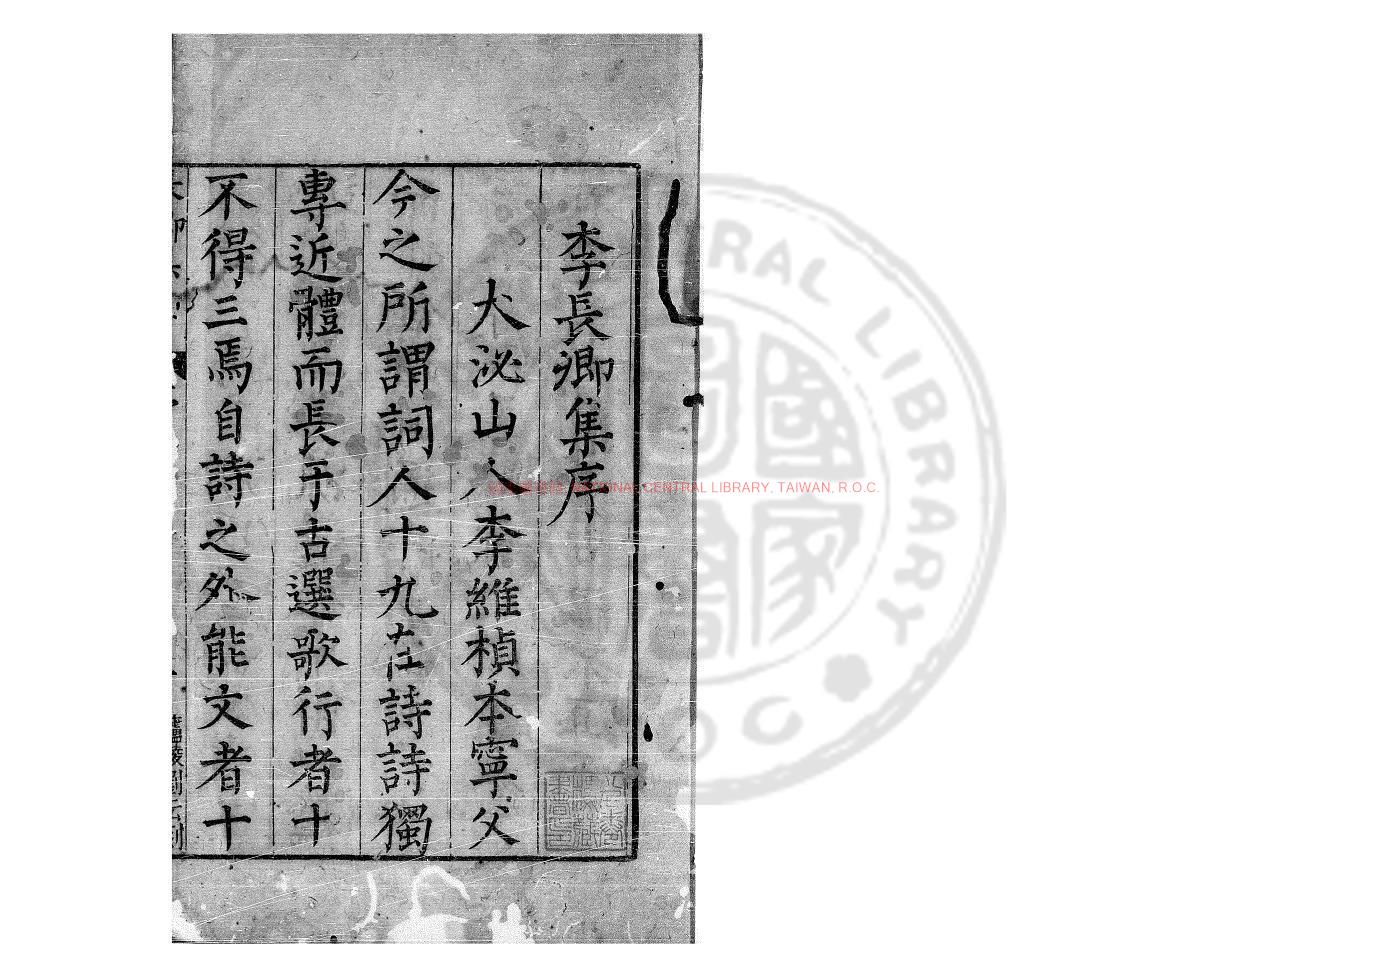 李長卿集序
大泌山人李維楨本寧父
今之所謂詞人十九在詩詩獨
專近體而長于古選歌行者十
不得三焉自詩之外能文者十
NATIONAL CENTRAL LIBRARY, TAIWAN, R.O.C.
CENTRAL LIBRARY